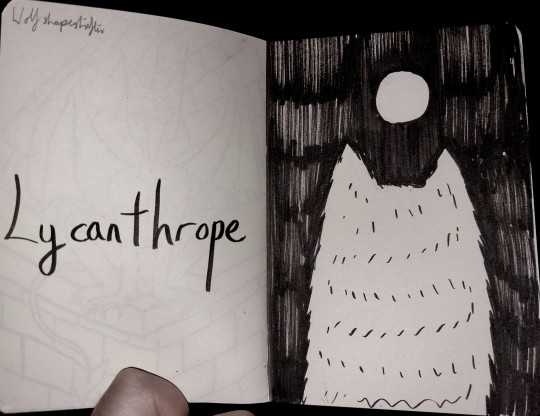 Wolf shapeshifter
Lycanthrope